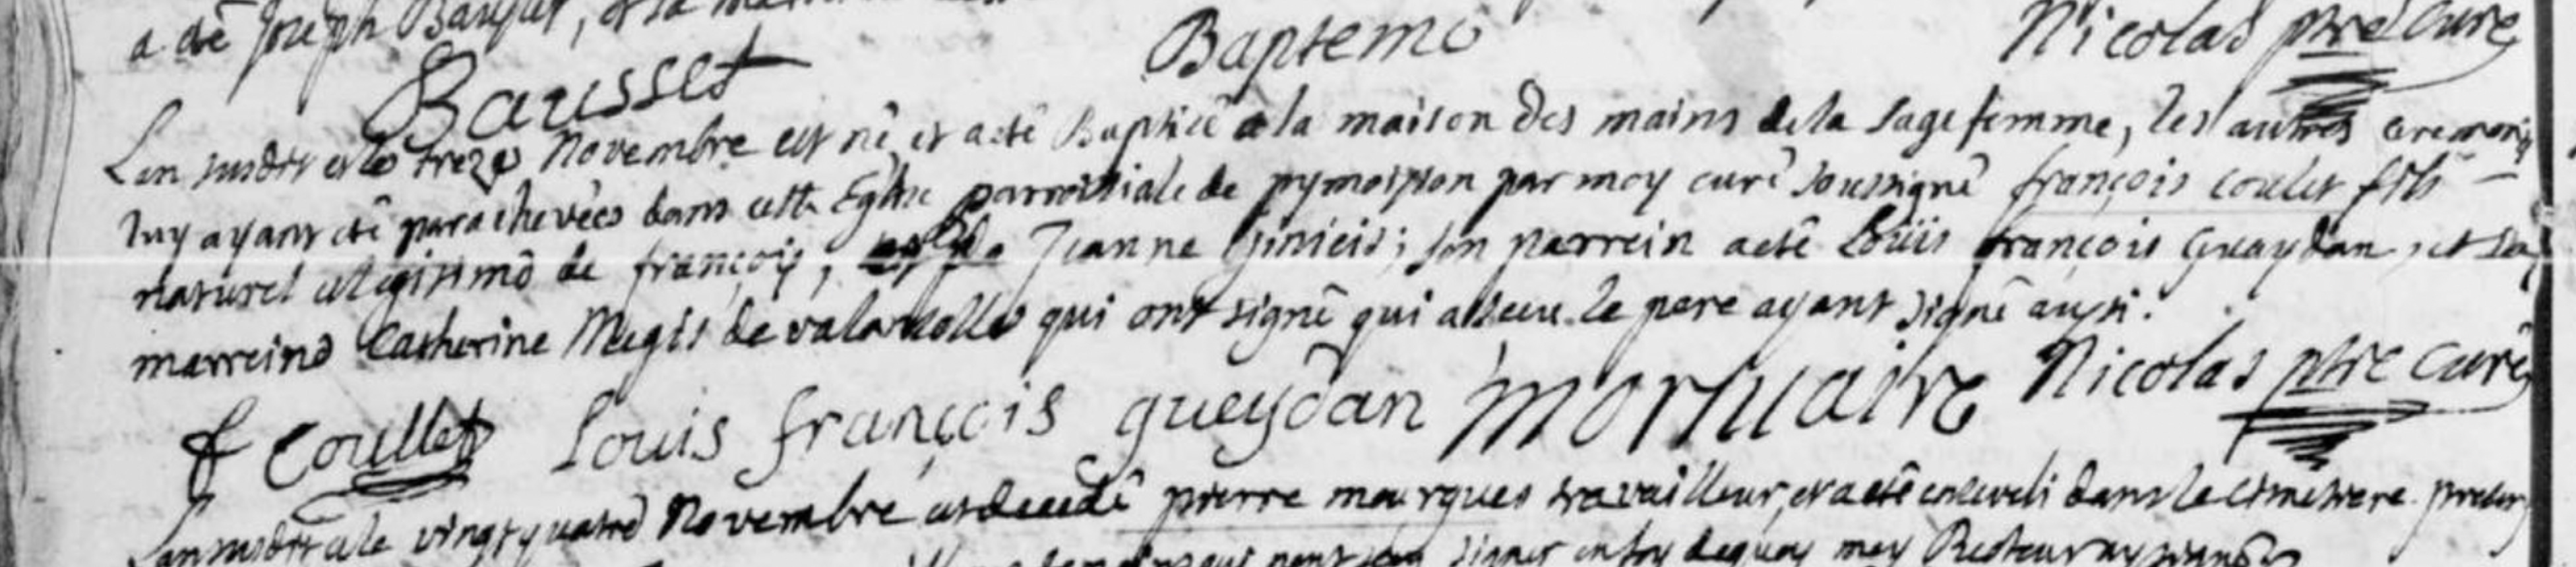 a été Joseph Bausset, et la
Baptemo Nicolas ptre Curé
Bausset
L'an susdit et le treze Novembre est né et a eté Baptisé a la maison des mains de la Sage femme, les autres ceremonies
luy ayant eté parachevées dans cette Eglise parroissiale de pymoisson par moy curé soussigné françois coulet fils
naturel et legitime de françois, et de Jeanne ; son parrein a eté Loüis françois Gueydan, et sa
marreine Catherine Megis de valansolle qui ont signé qui a sceu. le pere ayant signé aussi.
f Coullet Louis françois gueydan Nicolas ptre Curé
L'an susdit et le vingt quatre Novembre est decedé pierre mourgues travailleur, et a eté enseveli dans le cimetiere
signer en foy dequoy moy Recteur ay signé